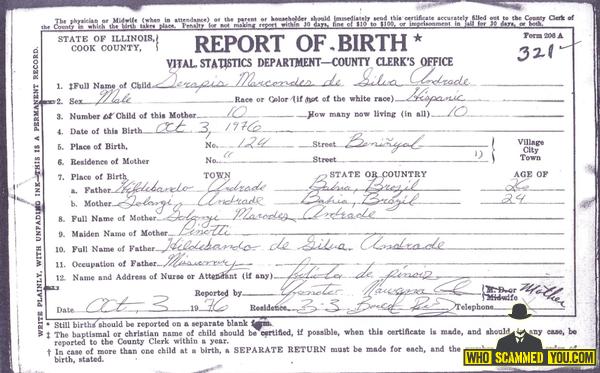 The physician or Midwife (when in attendance) or the parent or householder should immediately send this certificate accurately filled out to the County Clerk of
the County in which the birth takes place. Penalty for not making report within 30 days, fine of $10 to $100, or imprisonment in jail for 30 days, or both.
STATE OF ILLINOIS,
COOK COUNTY,
REPORT OF BIRTH*
Form 206 A
321
VITAL STATISTICS DEPARTMENT—COUNTY CLERK'S OFFICE
WRITE PLAINLY, WITH UNFADING INK—THIS IS A PERMANENT RECORD.
1. ‡Full Name of Child Serapis Marcondes de Silva Andrade
2. Sex Male Race or Color (if not of the white race) Hispanic
3. Number of Child of this Mother 10 How many now living (in all) 10
4. Date of this Birth Oct 3, 1976
5. Place of Birth, No. 124 Street
6. Residence of Mother No. " Street
Village
City
Town
7. Place of Birth TOWN STATE OR COUNTRY AGE OF
a. Father Hildebando Andrade Bahia, Brazil 26
b. Mother Solange Andrade Bahia, Brazil 24
8. Full Name of Mother Solange Andrade
9. Maiden Name of Mother Pinotti
10. Full Name of Father Hildebando de Silva Andrade
11. Occupation of Father Missionary
12. Name and Address of Nurse or Attendant (if any)
Reported by
M. D. or
Midwife
Mother
Date Oct 3 1976 Residence Telephone
* Still births should be reported on a separate blank form.
‡ The baptismal or christian name of child should be certified, if possible, when this certificate is made, and should in any case, be
reported to the County Clerk within a year.
† In case of more than one child at a birth, a SEPARATE RETURN must be made for each, and the number of
birth, stated.
WHO SCAMMED YOU.COM